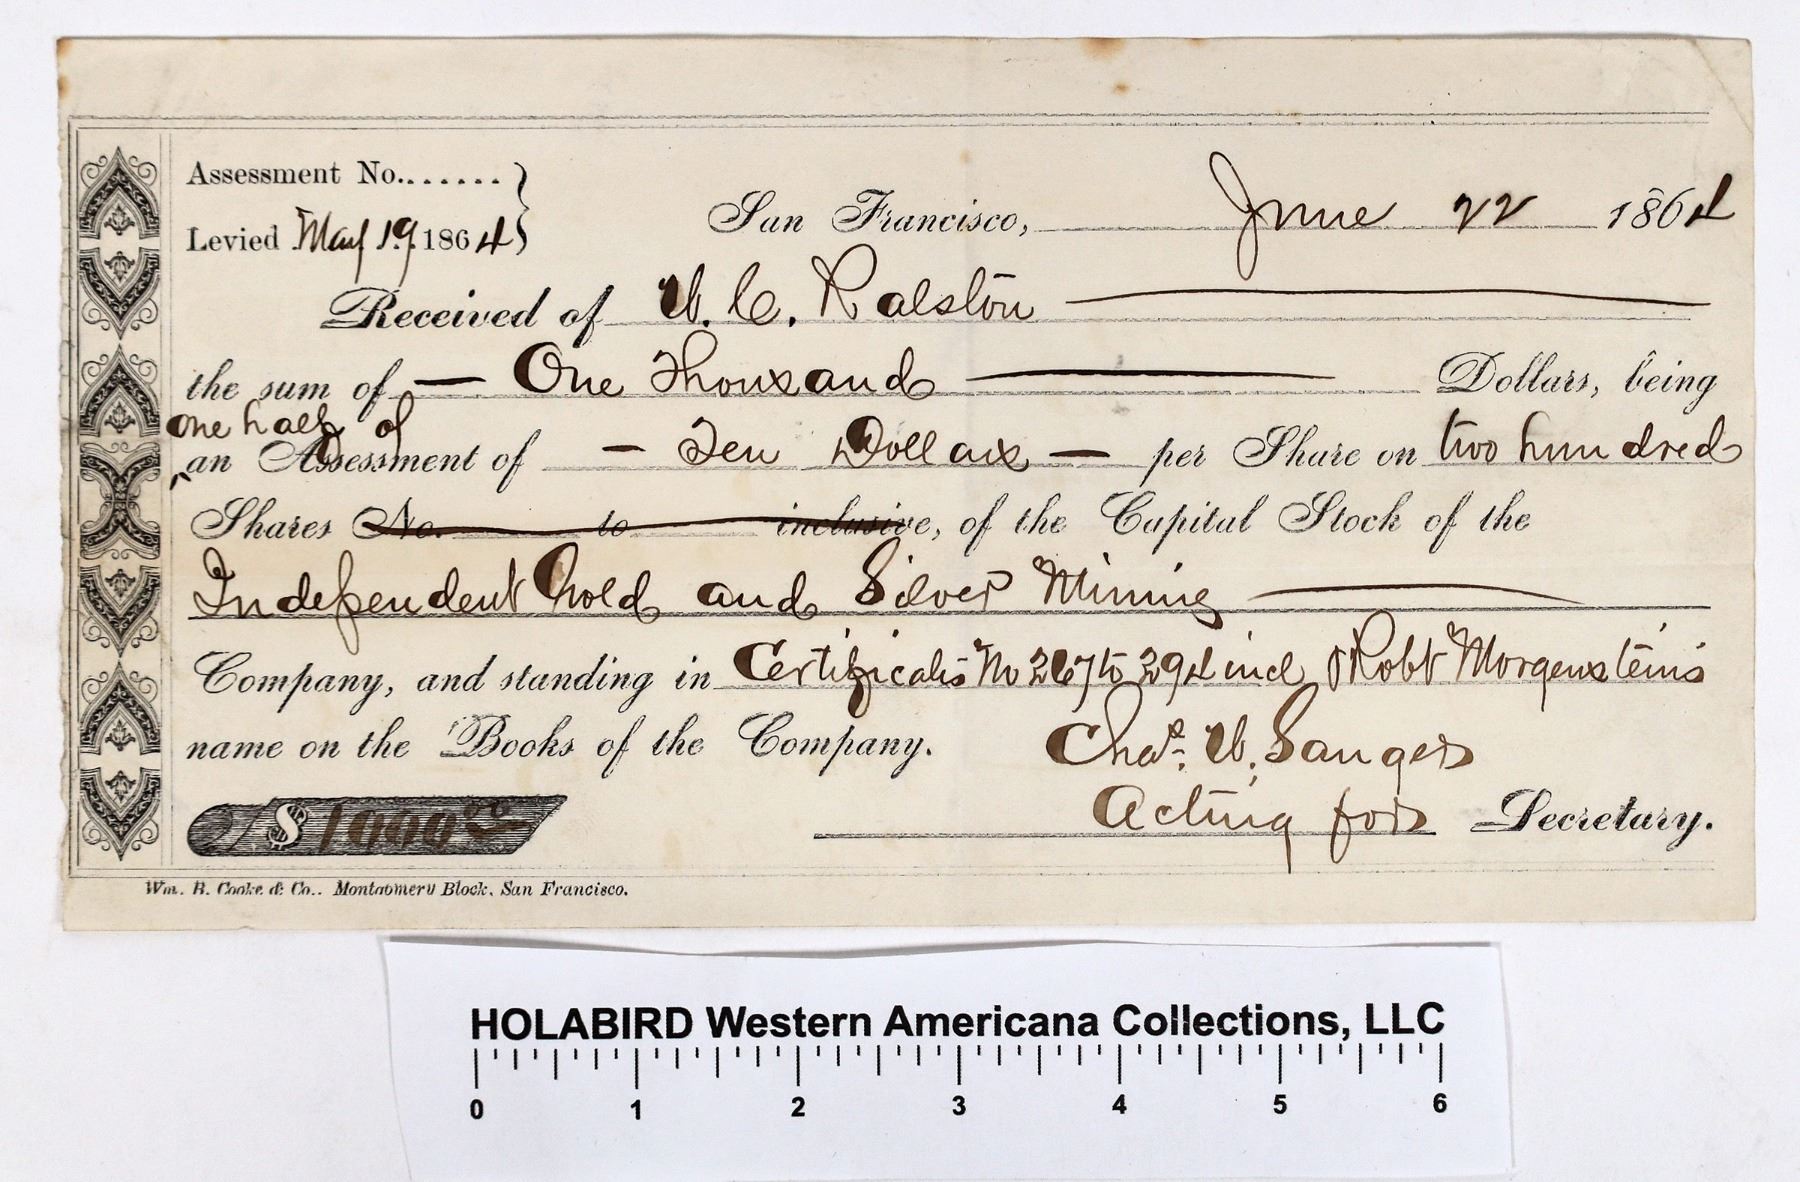 Assessment No........
Levied May 19 1864
San Francisco, June 22 1864
Received of W. C. Ralston
the sum of — One Thousand — Dollars, being
one half of
an Assessment of — Ten Dollars — per Share on two hundred
Shares No. to inclusive, of the Capital Stock of the
Independent Gold and Silver Mining
Company, and standing in Certificates No 267 to 294 incl Robt Morgensteins
name on the Books of the Company.
Chas. W. Sanger
Acting for Secretary.
$1000
Wm. B. Cooke & Co., Montgomery Block, San Francisco.
HOLABIRD Western Americana Collections, LLC
0 1 2 3 4 5 6